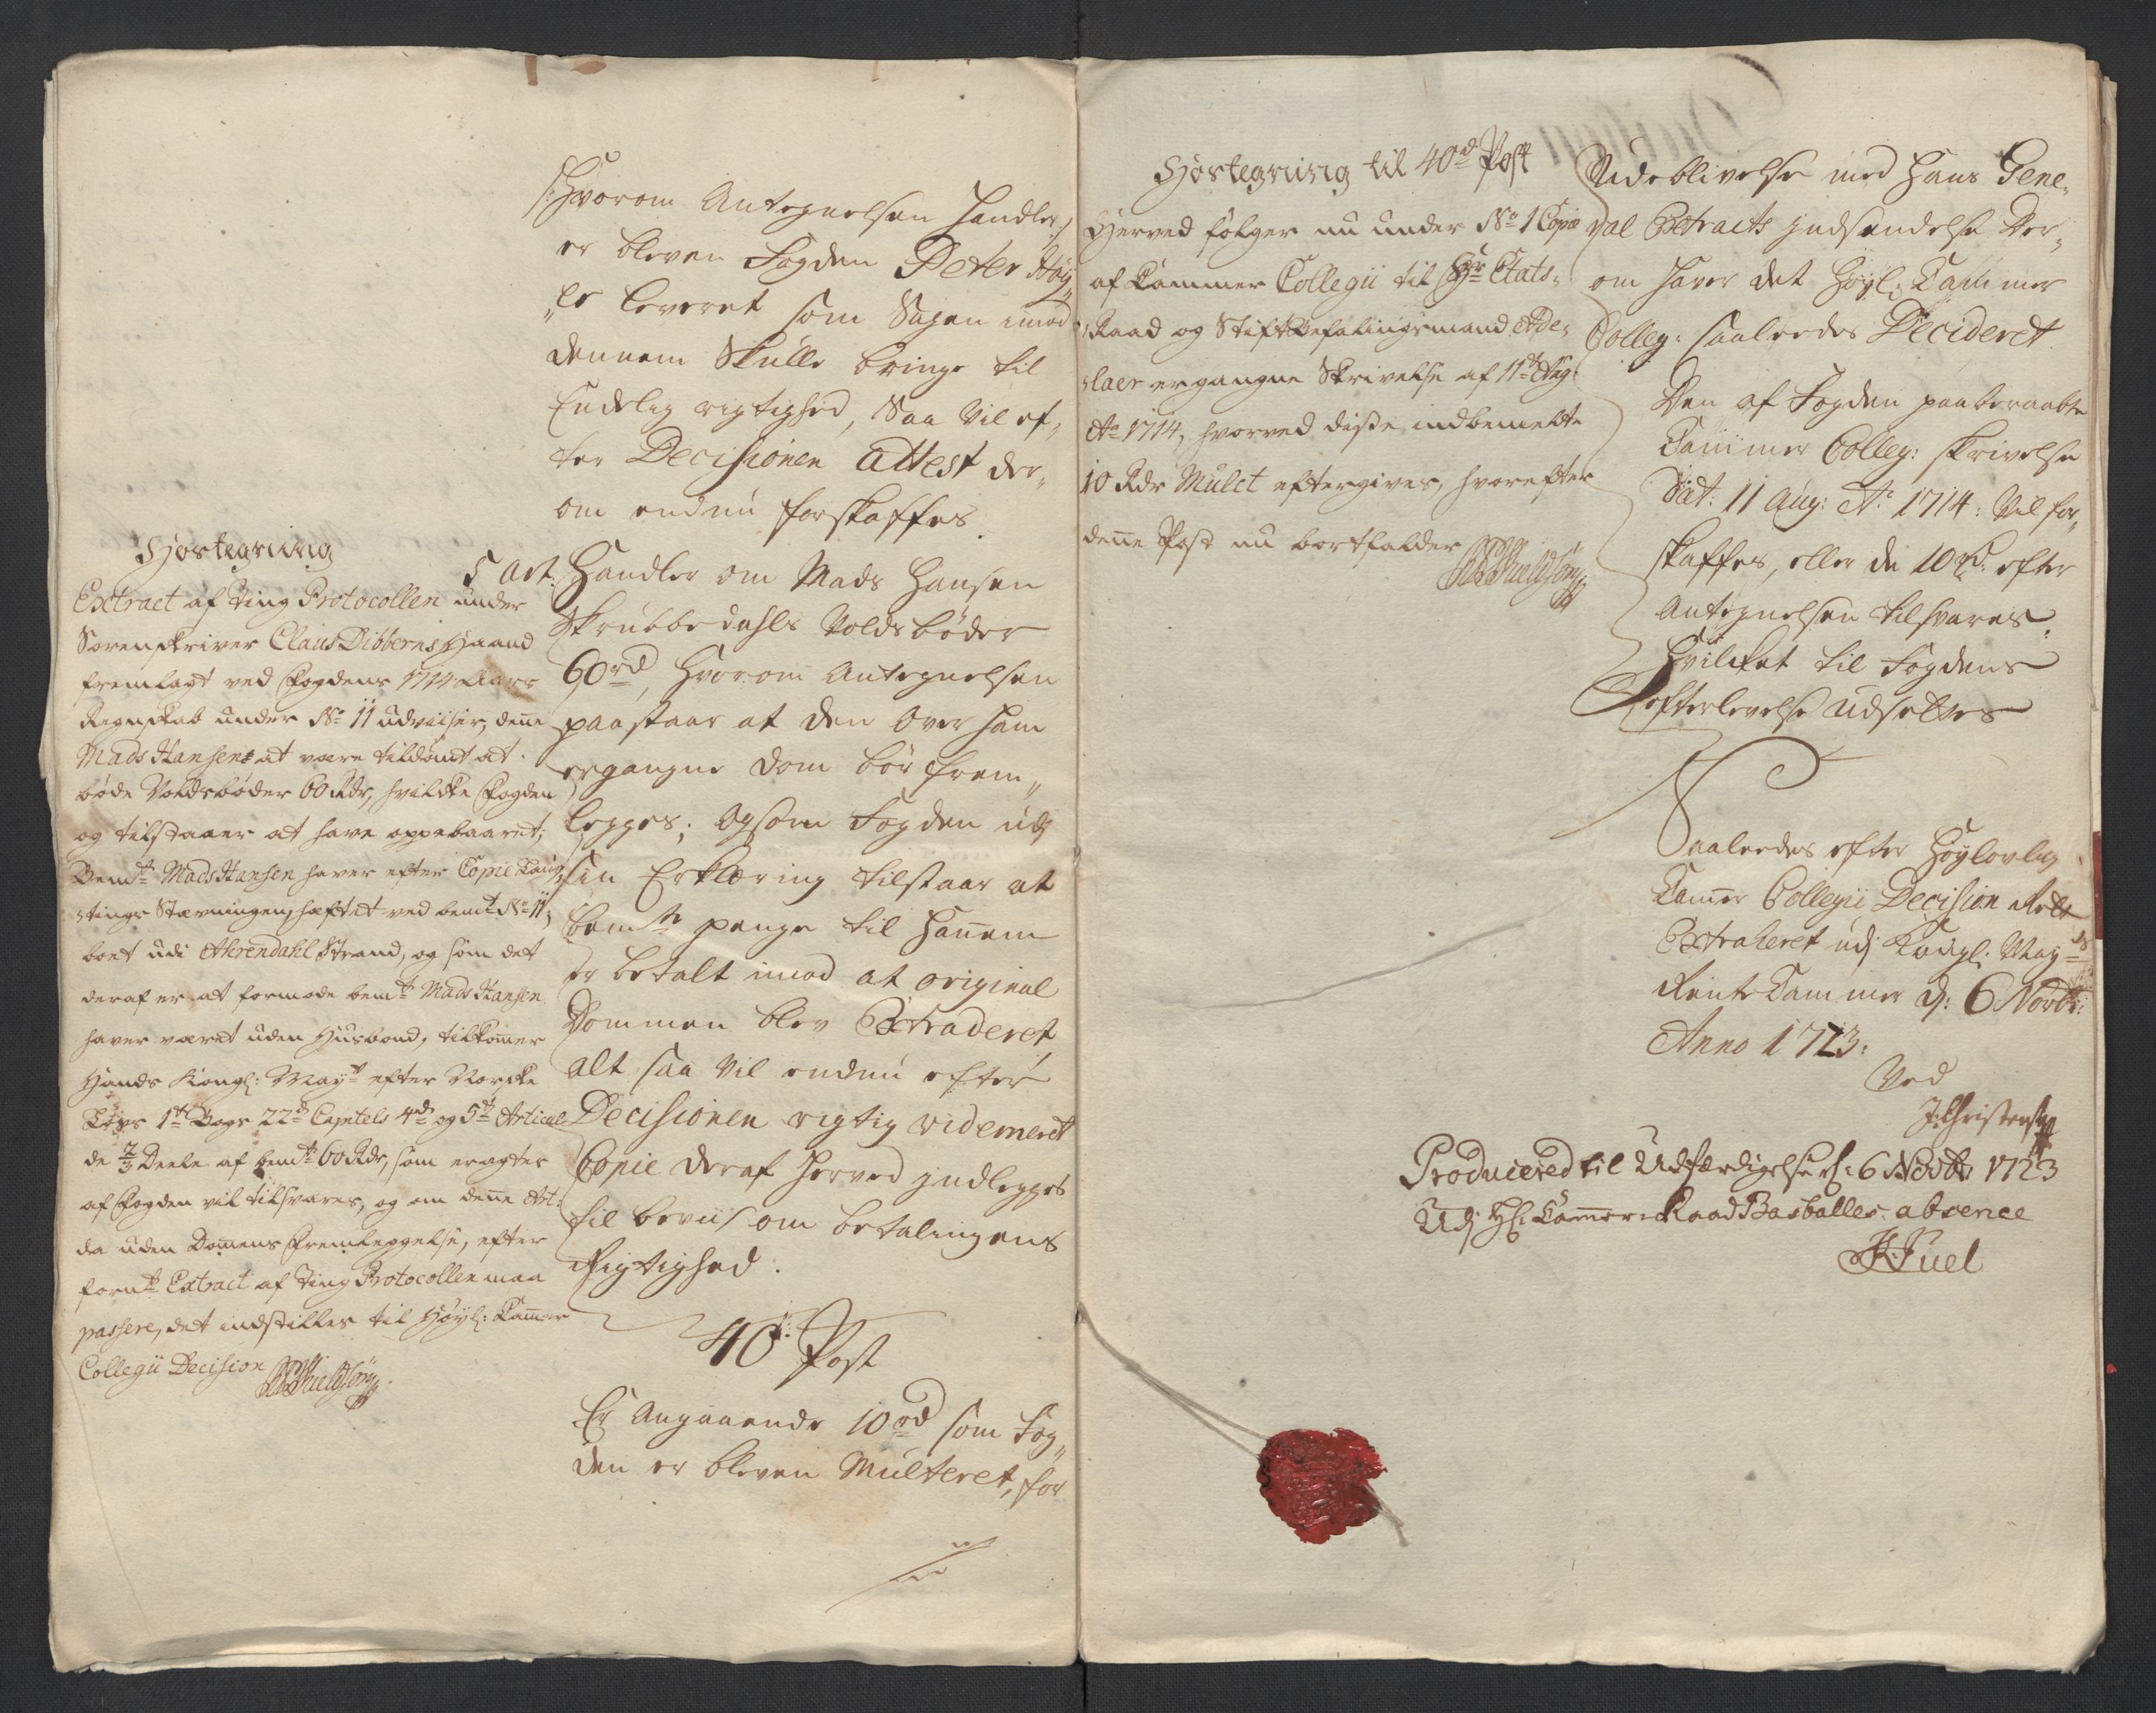 /:hvorom Antegnelsen handler:/
er bleven Fogden Peter Høy„
„er leveret som Sagen imod
dennem Skulle bringe til
Endelig rigtighed, Saa Vil ef„
ter Decisionen attest der„
om endnu forskaffes.
5 Art: Handler om Mads Hansen
Skrubbedahls Voldsbøder
60 rd, hvorom Antegnelsen
paastaar at den over ham
ergangne dom bør frem„
legges; Og som Fogden udj
sin Erklæring tilstaar at
bemte penge til hannem
er betalt imod at original
Dommen blev Extraderet
alt saa vil endnu efter
Decisionen rigtig videmeret
Copie deraf herved jndlegges
til beviis om betalingens
Rigtighed.
40. Post
Er Angaaende 10 rd som Fog„
den er bleven Multeret, for
Hostegning
Extract af Ting Protocollen under
Sorenskriver Claus Dibberns Haand
fremlagt ved Fogdens 1714 Aars
Regnskab under No 11 udviiser, denne
Mads Hansen at være tildømt at
bøde Voldsbøder 60 Rdr, hvilcke Fogden
og tilstaaer at have oppebaaret;
Bemte Mads Hansen haver efter Copie Laug„
„tings Stævningen, hæftet ved bemt No 11,
boet udi Ahrendahl Strand, og som det
deraf er at formode bemte Mads Hansen
haver været uden Husbond, tilkommer
Hands Kongl: Mayt efter Norske
Lovs 1te Bogs 22de Capitels 4de og 5te Articul
de 2/3 Deele af bemte 60 Rdr, som eragtes
af Fogden vil tilsvares, og om denne Art:
da uden Domens Fremleggelse, efter
fornte Extract af Ting Protocollen maa
passere, det indstilles til Høyl: Cammer
Collegii Decision
Hostegning til 40de Post
Herved følger nu under No 1 Copie
af Cammer Collegii til Hr Etats„
„Raad og Stiftbefalingsmand Ade„
„laer ergangne Skrivelse af 11te Aug:
Ao 1714, hvorved disse indbemelte
10 Rdr Mulct eftergives, hvorefter
denne Post nu bortfalder
Udeblivelse med hans Gene„
ral Extracts jndsendelse der„
om haver det høyl: Cammer
Colleg: saaledes Decideret
Den af Fogden paaberaabte
Cammer Colleg: skrivelse
Dat: 11 Aug: Ao 1714: Vil for„
skaffes, eller de 10 rd: efter
Antegnelsen tilsvares.
Hvilcket til Fogdens
Efterlevelse udsettes
Saaledes efter Høylovlig
Camer Collegii Decision
Extraheret udj Kongl: May=ts
Rente Cammer d: 6 Novbr:
Anno 1723.
Ved
J: Christensen
Producered til Udfærdigelse d: 6 Novbr 1723
Udj Hl: Cammer-Raad Basballes absence
Juel